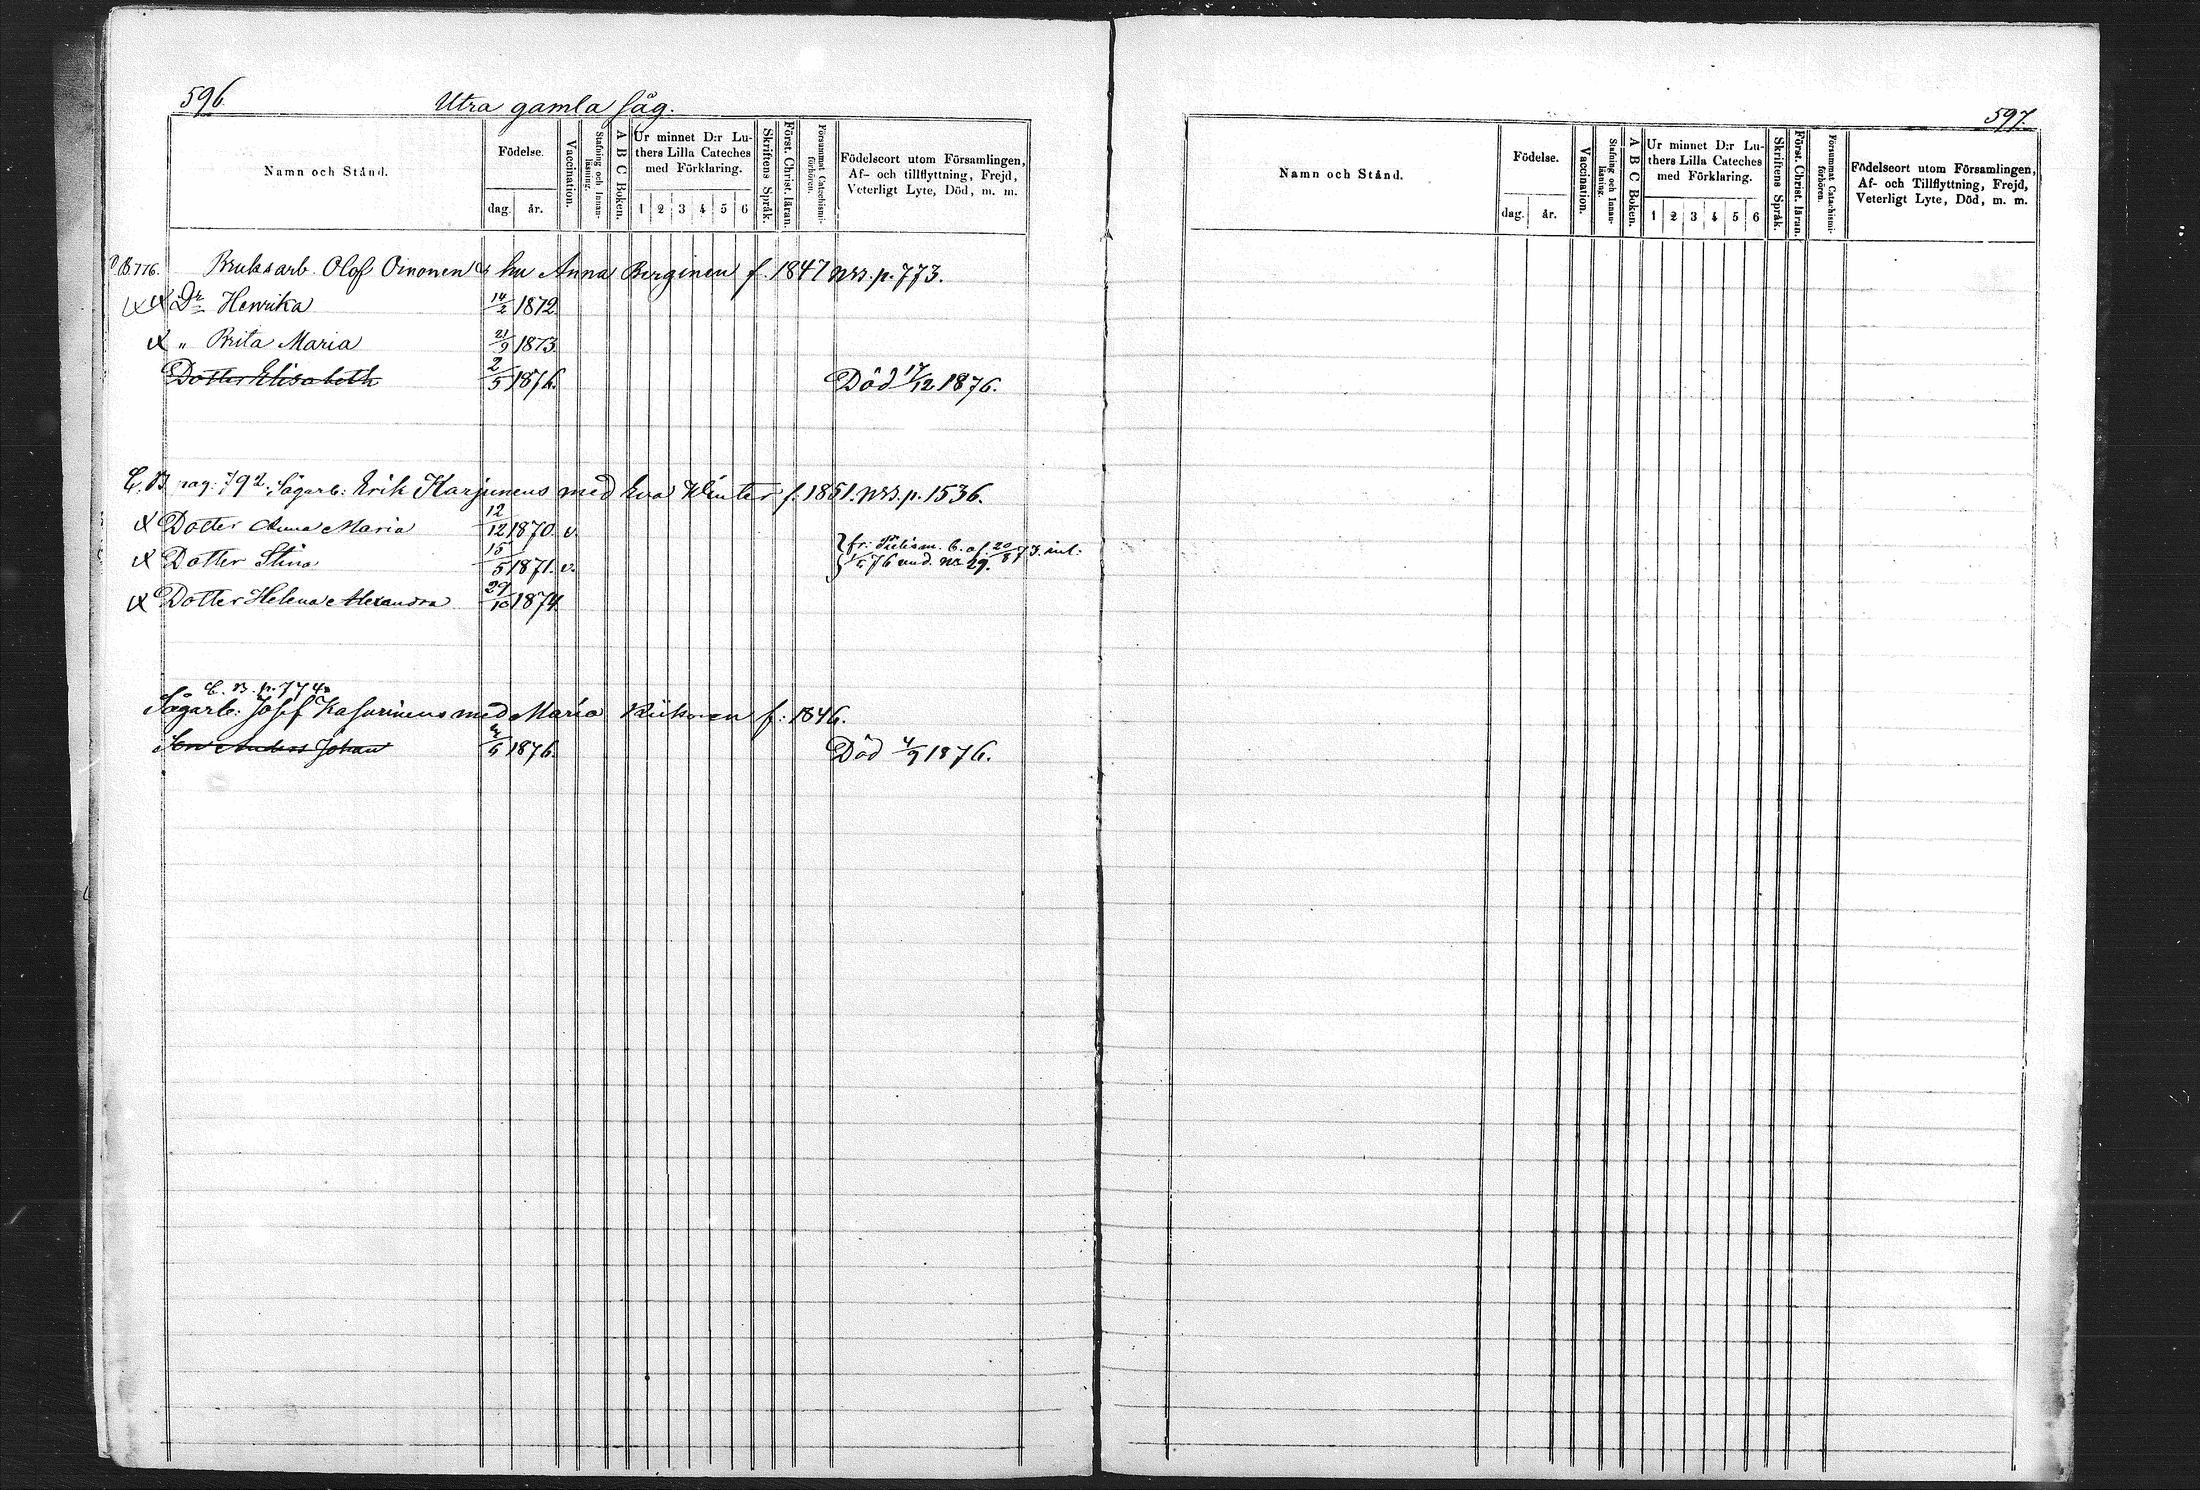 596.
Utra gamla såg.
Namn och Stånd.
Födelse.
dag. år.
Vaccination.
Stafning och Innanläsning.
A B C Boken.
Ur minnet D:r Luthers Lilla Cateches med Förklaring.
1 2 3 4 5 6
Skriftens Språk.
Först. Christ. läran.
Försummat Catechismiförhören.
Födelseort utom Församlingen,
Af- och tillflyttning, Frejd,
Veterligt Lyte, Död, m. m.
B. 776. Bruksarb. Olof Oinonen & hu Anna Berginen f. 1847 nrs. p. 773.
Dr Henrika 14/2 1872.
" Brita Maria 21/9 1873
Dotter Elisabeth 2/5 1876. Död 17/12 1876.
C. B. pag: 792. Sågarb: Erik Karjunens med Eva Winter f. 1851. nrs. p. 1536.
Dotter Anna Maria 12/12 1870. v.
Dotter Stina 15/5 1871. v. fr: Pielism. b. af. 20/8 73. inl.
76 und. nr 29.
Dotter Helena Alexandra 29/10 1874
C. B. p. 774
Sågarb: Josef Kasurinens med Maria f: 1846.
Son Anders Johan 1876. Död 4/9 1876.
597.
Namn och Stånd.
Födelse.
dag. år.
Vaccination.
Stafning och Innanläsning.
A B C Boken.
Ur minnet D:r Luthers Lilla Cateches med Förklaring.
1 2 3 4 5 6
Skriftens Språk.
Först. Christ. läran.
Försummat Catechismiförhören.
Födelseort utom Församlingen,
Af- och Tillflyttning, Frejd,
Veterligt Lyte, Död, m. m.